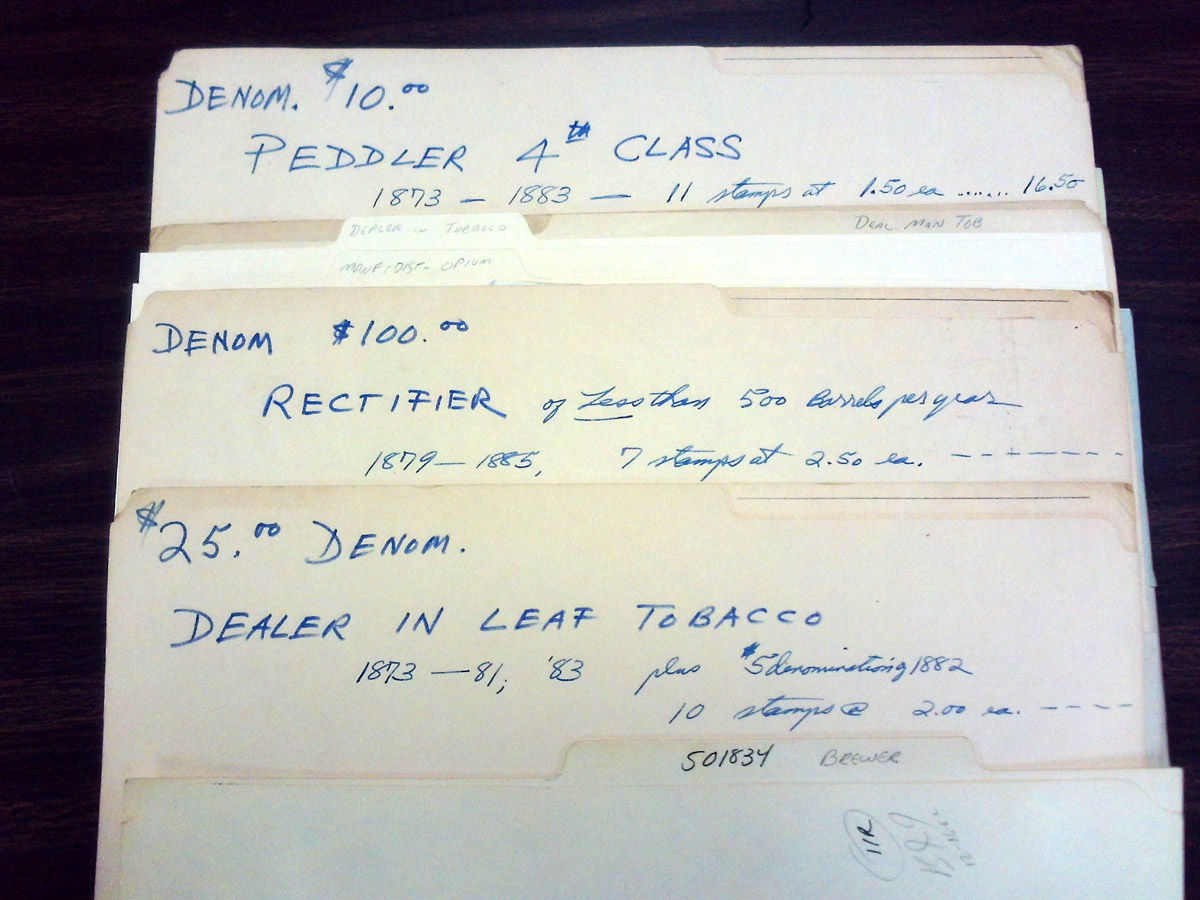 DENOM. $10.00
PEDDLER 4th CLASS
1873 — 1883 — 11 stamps at 1.50 ea ...... 16.50
DEALER IN TOBACCO
DEAL. MAN TOB
MANF. DIST- OPIUM
DENOM $100.00
RECTIFIER of Less than 500 Barrels per year
1879 — 1885, 7 stamps at 2.50 ea. - - - - - - -
$25.00 DENOM.
DEALER IN LEAF TOBACCO
1873 — 81, '83 plus $5 denomination of 1882
10 stamps @ 2.00 ea. - - - -
501834 BREWER
11R